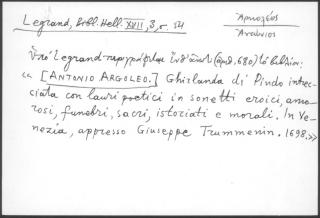 Legrand, Bibl. Hell. XVII, 3, σ. 54
Αργολέος
Αναώνιος
Ὑπό Legrand περιγράφεται (ἀριθ. 680) τό βιβλίον:
« [ANTONIO ARGOLEO.] Ghirlanda di Pindo intrec-
ciata con lauri poetici in sonetti eroici, amo-
rosi, funebri, sacri, istoriati e morali. In Ve-
nezia, appresso Giuseppe Trammenin. 1698.»